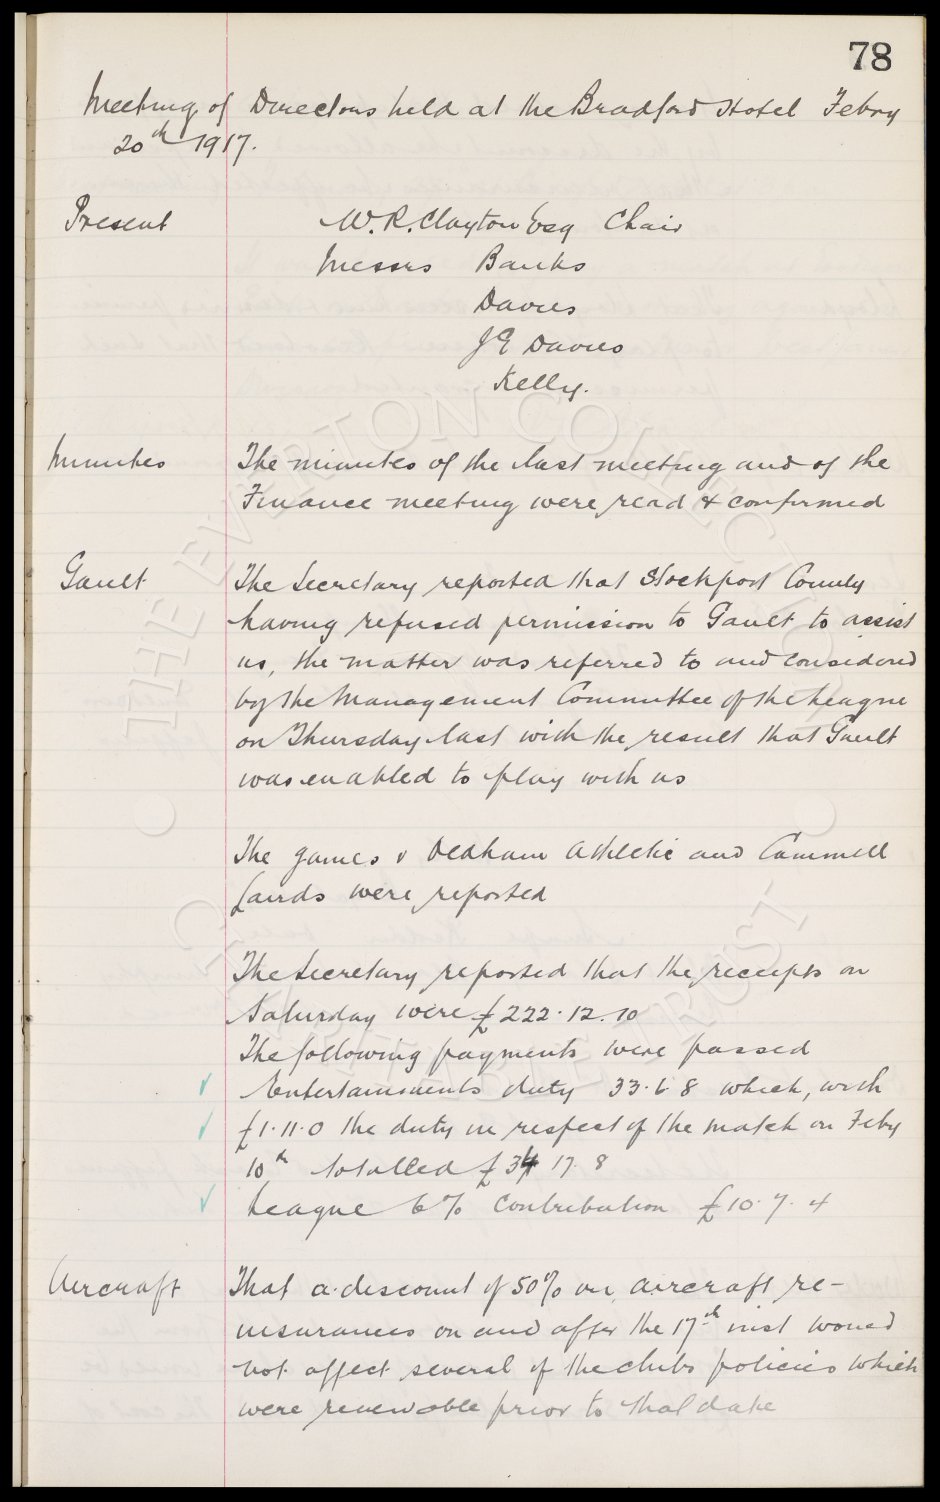 78
Meeting of Directors held at the Bradford Hotel Febry
20th 1917.
Present W. R. Clayton Esq Chair
Messrs Banks
Davies
J E Davies
Kelly.
Minutes The minutes of the last meeting and of the
Finance meeting were read & confirmed
Gault The Secretary reported that Stockport County
having refused permission to Gault to assist
us, the matter was referred to and considered
by the Management Committee of the League
on Thursday last with the result that Gault
was enabled to play with us
The games v Oldham Athletic and Cammell
Lairds were reported
The Secretary reported that the receipts on
Saturday were £222.12.10
The following payments were passed
✓ Entertainments duty 33.6.8 which, with
✓ £1.11.0 the duty in respect of the match on Feby
10th totalled £34 17. 8
✓ League 6% Contribution £10.7.4
Aircraft That a discount of 50% on aircraft re-
insurances on and after the 17th inst would
not affect several of the clubs policies which
were renewable prior to that date
THE EVERTON COLLECTION
CHARITABLE TRUST